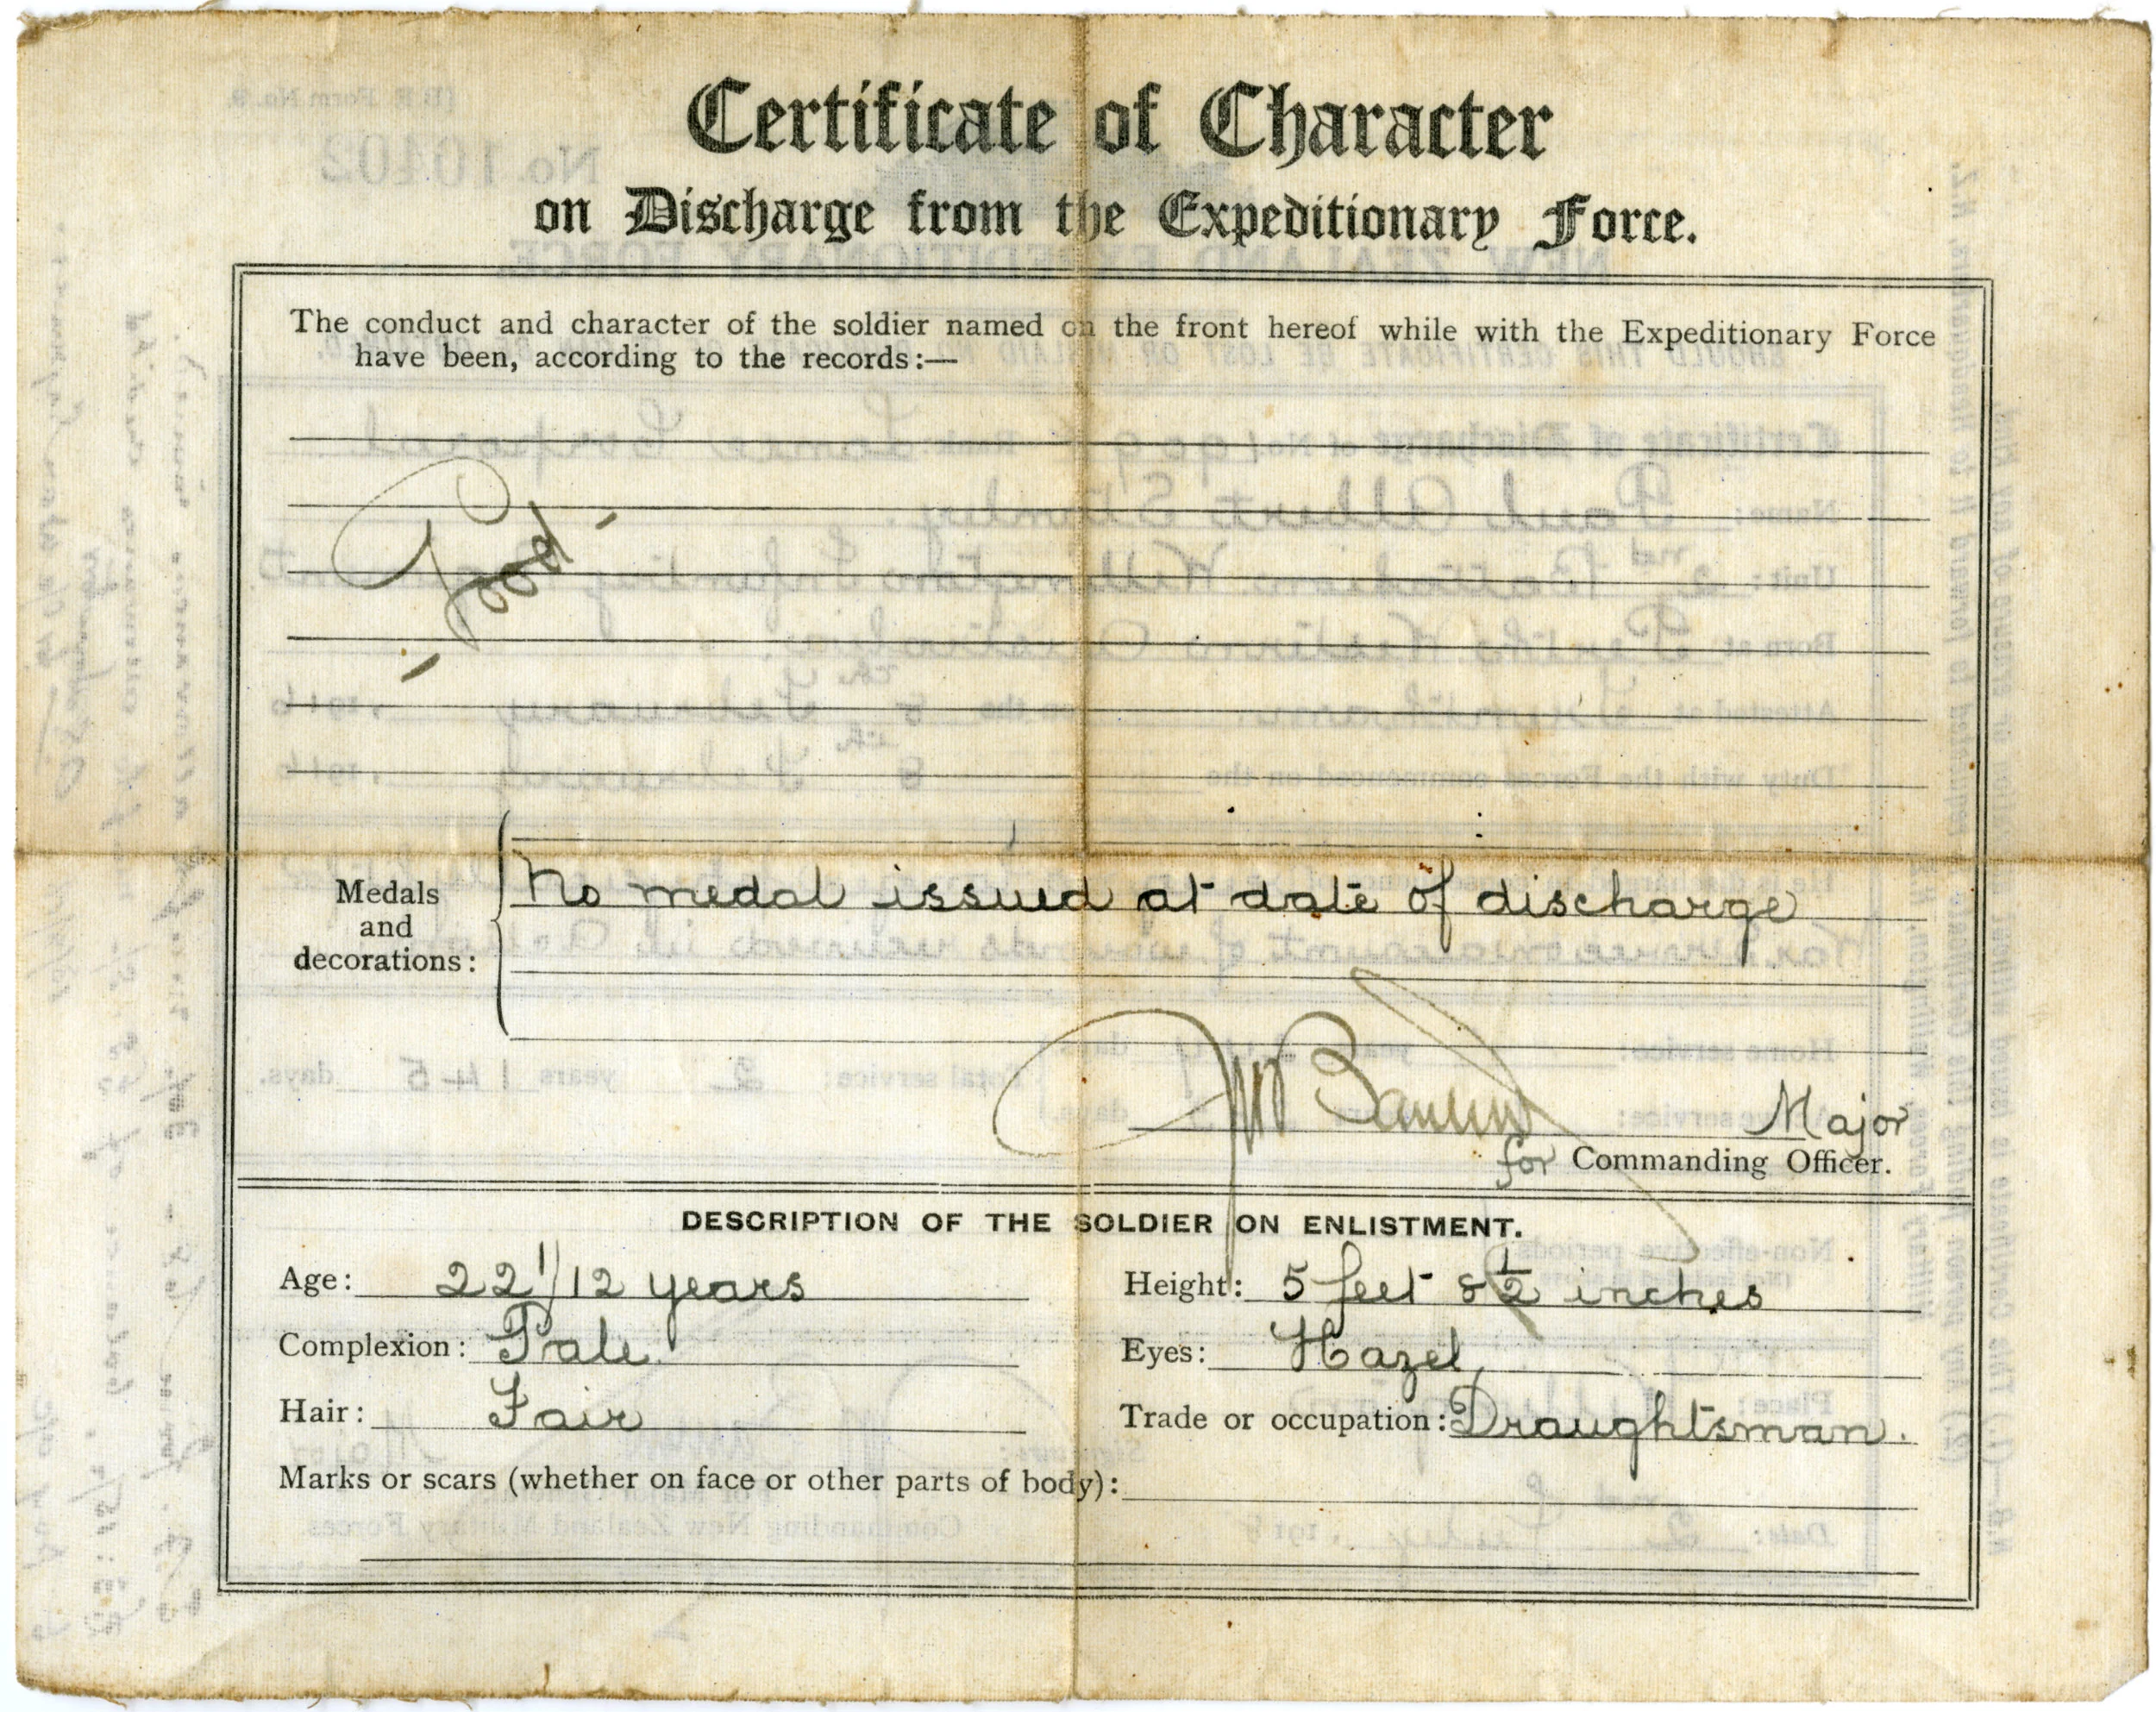 Certificate of Character
on Discharge from the Expeditionary Force.
The conduct and character of the soldier named on the front hereof while with the Expeditionary Force
have been, according to the records:—
- Good -
Medals
and
decorations:
No medal issued at date of discharge
Major
for Commanding Officer.
DESCRIPTION OF THE SOLDIER ON ENLISTMENT.
Age: 22 1/12 years Height: 5 feet 8 1/2 inches
Complexion: Pale. Eyes: Hazel
Hair: Fair Trade or occupation: Draughtsman.
Marks or scars (whether on face or other parts of body):